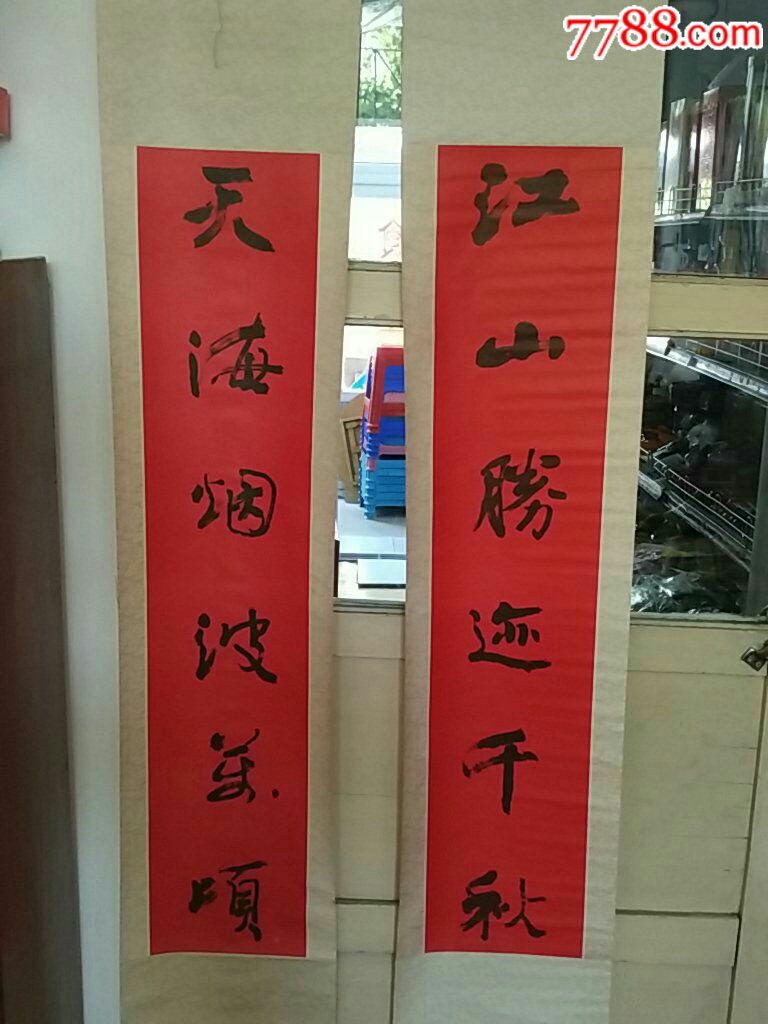 7788.com
江山勝迹千秋
天海烟波萬頃